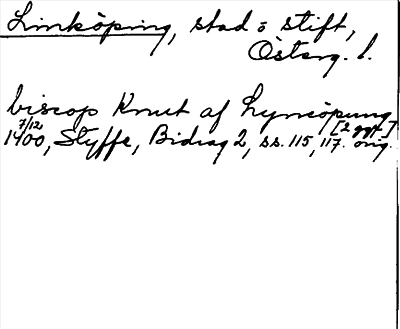 Linköping, stad o stift,
Österg. l.
biscop Knut af Lyncöpung
7/12 [2 ggr]
1400, Styffe, Bidrag 2, ss. 115, 117. orig.